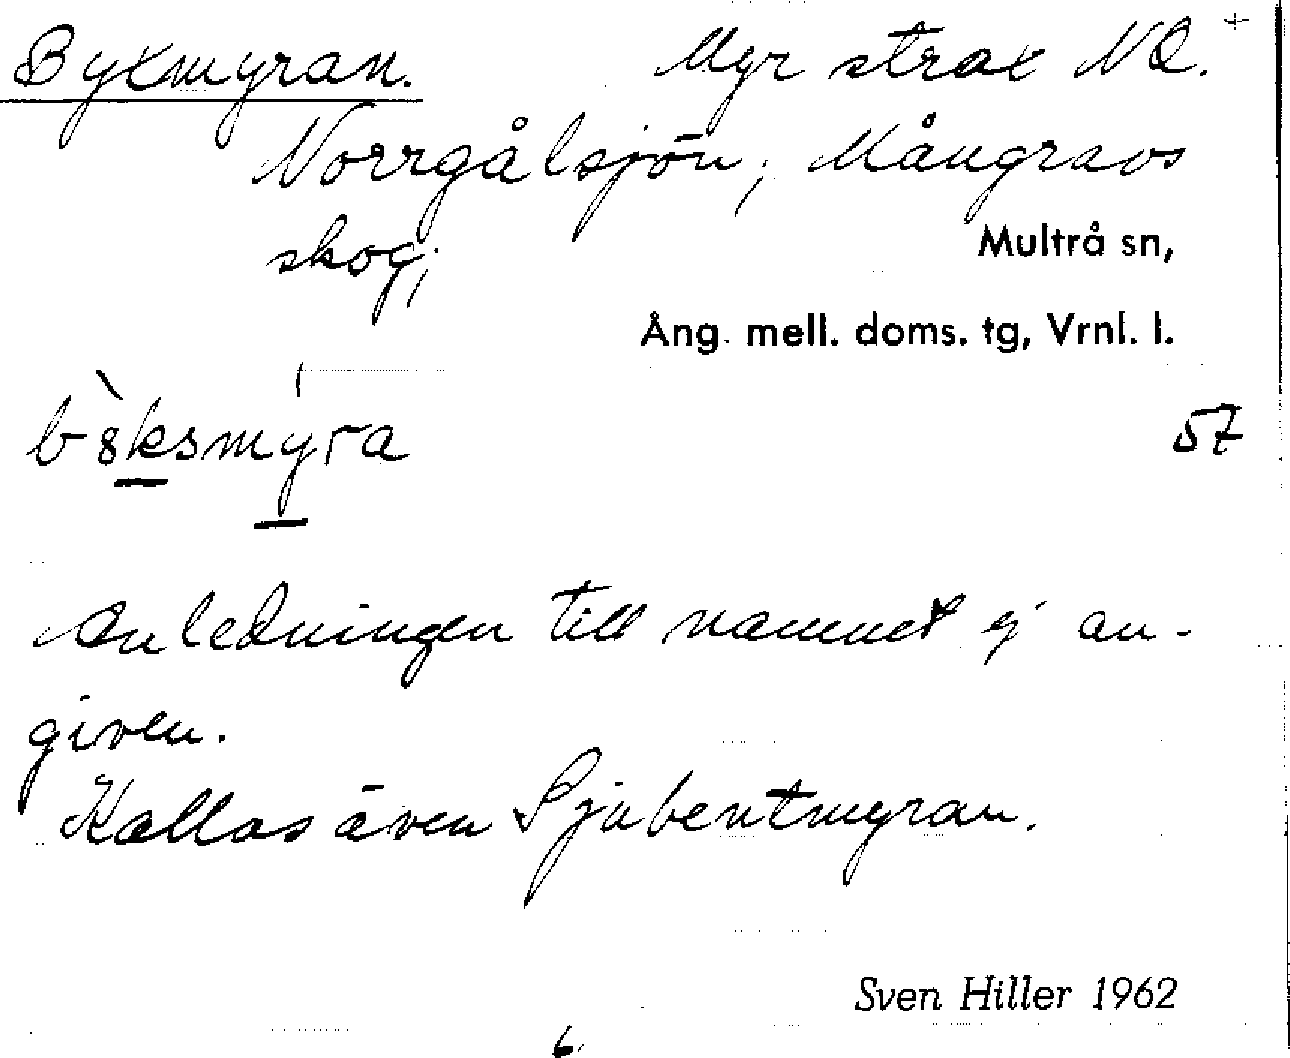 Byxmyran. Myr strax NO. +
Norrgålsjön; Mångravs
skog;
Multrå sn,
Ång. mell. doms. tg, Vrnl. l.
b8̀ksmy̍ra 57
Anledningen till namnet ej an-
given.
Kallas även Sjubentmyran.
Sven Hiller 1962
6.